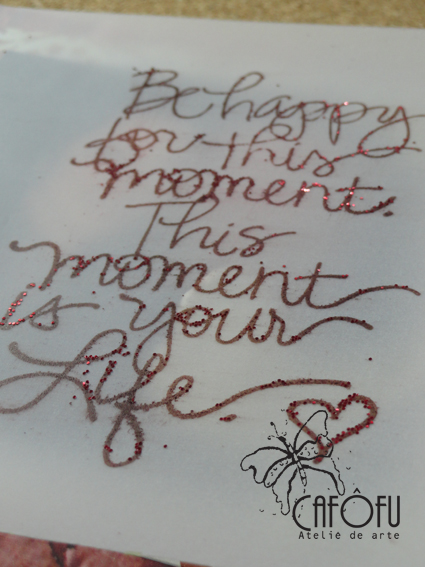 Be happy
for this
moment.
This
moment
is your
Life.
CAFÔFU
Ateliê de arte